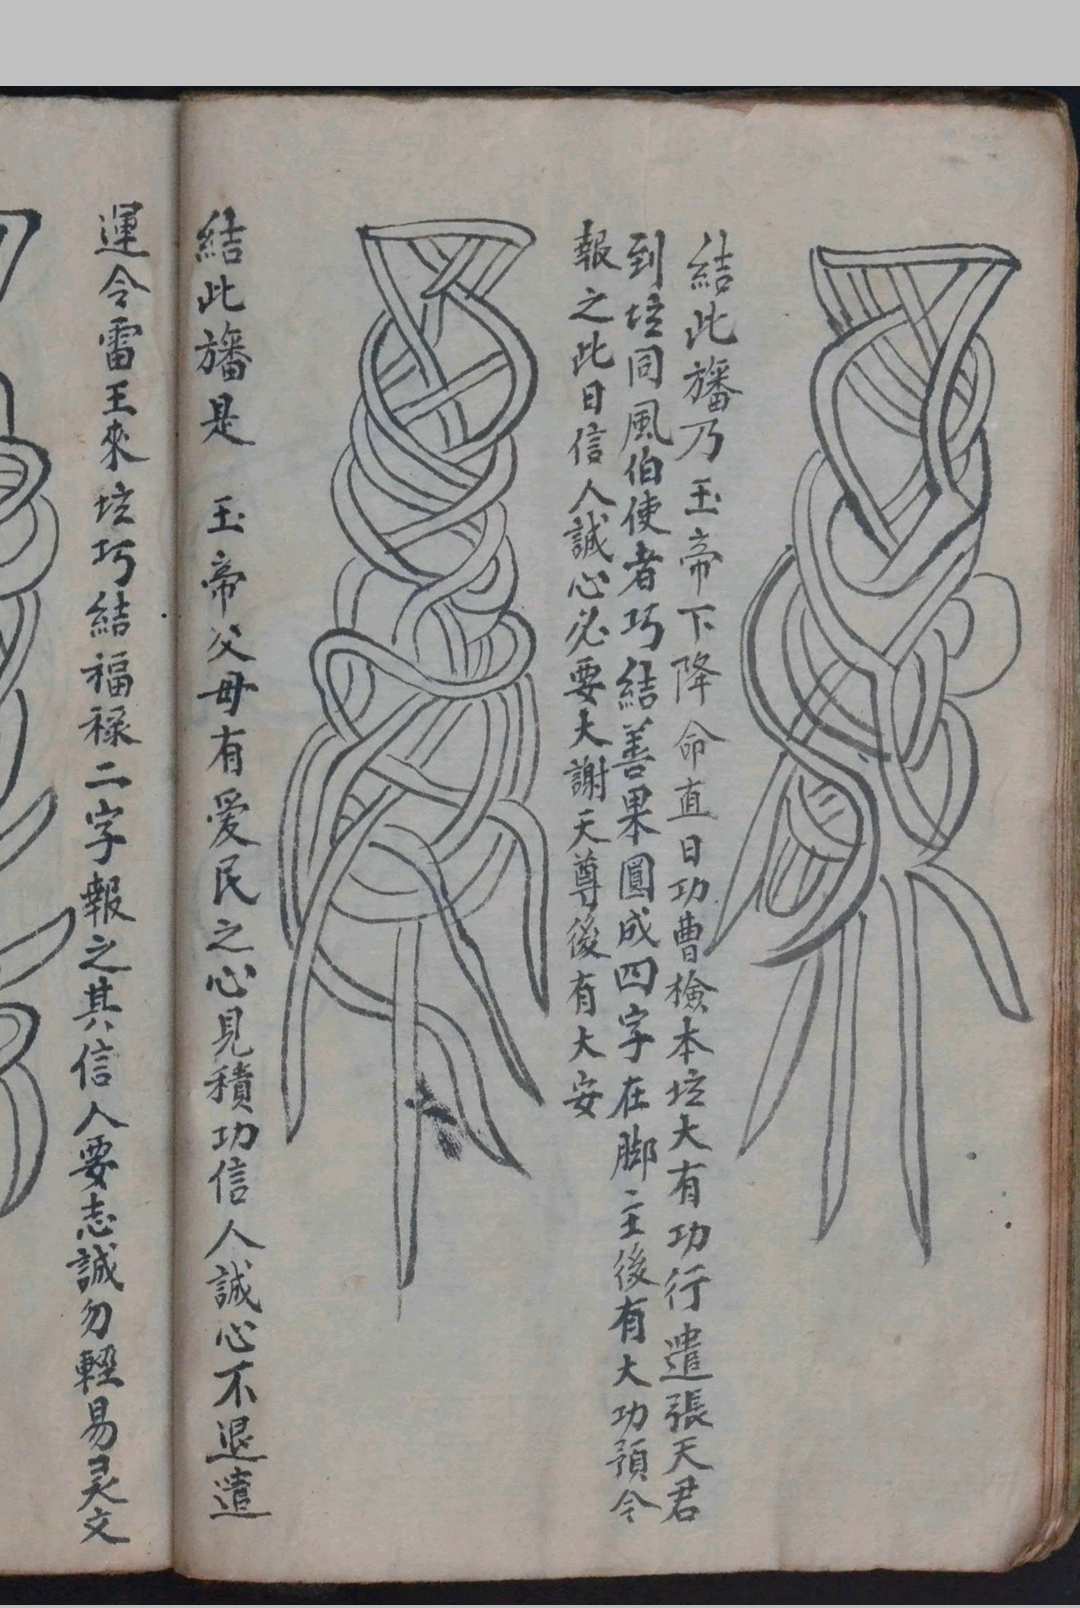 結此旛乃 玉帝下降命直日功曹檢本坛大有功行遣張天君
到坛同風伯使者巧結善果圓成四字在脚主後有大功預令
報之此日信人誠心必要大謝天尊後有大安
結此旛是 玉帝父母有爱民之心見積功信人誠心不退遣
運令雷王來坛巧結福祿二字報之其信人要志誠勿輕易灵文